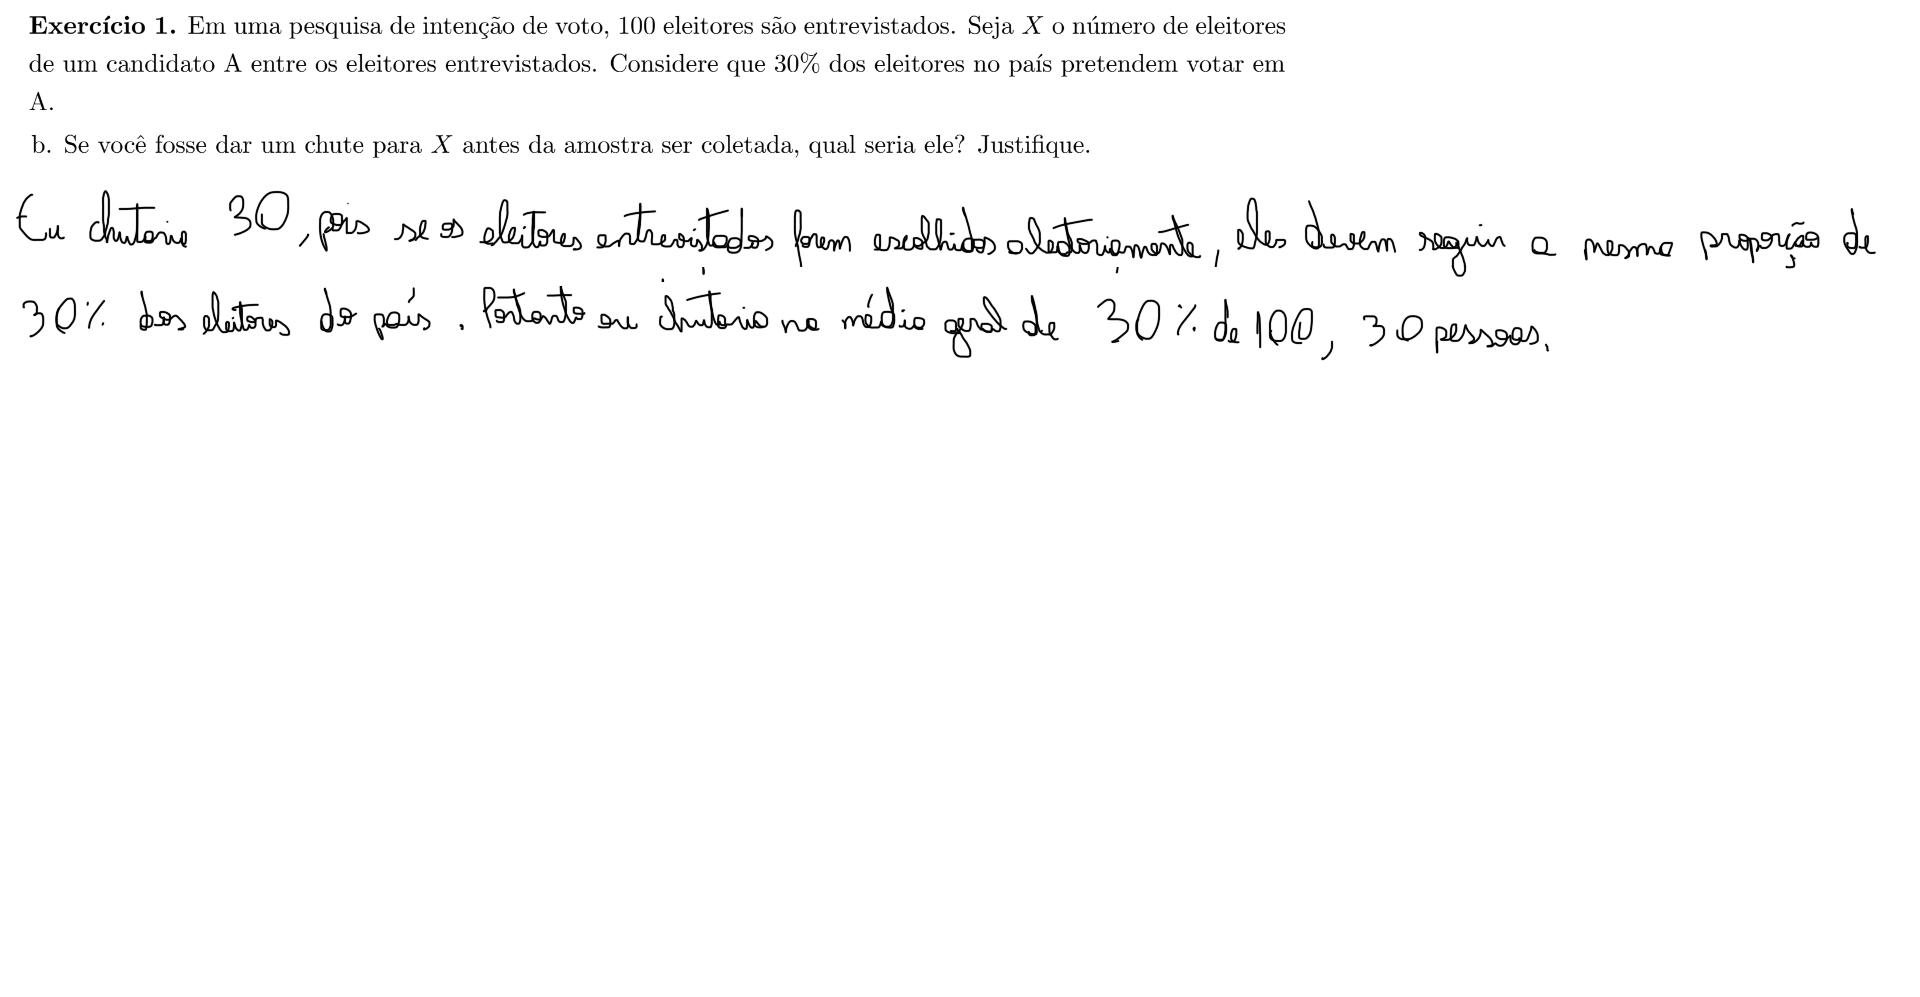 Exercício 1. Em uma pesquisa de intenção de voto, 100 eleitores são entrevistados. Seja X o número de eleitores
de um candidato A entre os eleitores entrevistados. Considere que 30% dos eleitores no país pretendem votar em
A.
b. Se você fosse dar um chute para X antes da amostra ser coletada, qual seria ele? Justifique.
Eu chutaria 30, pois se os eleitores entrevistados forem escolhidos aleatoriamente, eles devem seguir a mesma proporção de
30% dos eleitores do país. Portanto eu chutaria na média geral de 30% de 100, 30 pessoas.